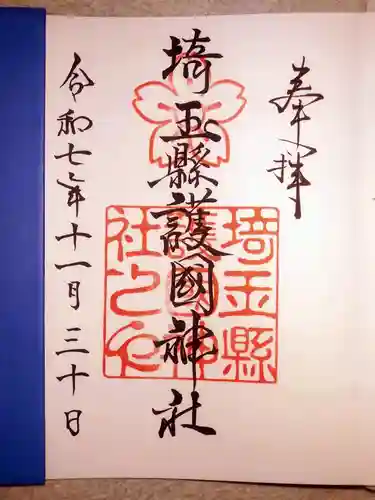 奉拝
埼玉縣護國神社
埼玉縣護國神社之印
令和七年十一月三十日